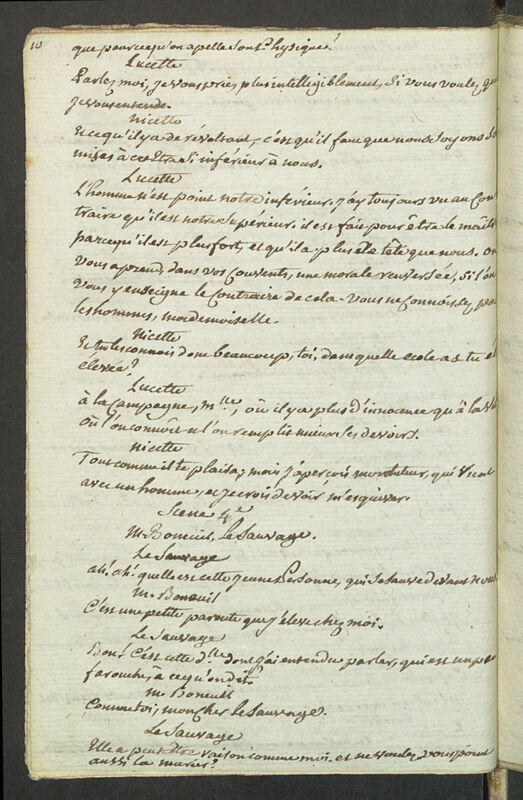 10
que pour ce qu'on apelle son phisique!
Lucette
Parlez moi, je vous prie, plus intelligiblement, si vous voulez que
je vous entende.
nicette
Et ce qu'il y a de révoltant, c'est qu'il faut que nous soyons so
mises à cet Etre si inférieur à nous.
Lucette
L'homme n'est point notre inférieur. j'ay toujours vu au Con
traire qu'il est notre Supérieur. il est fait pour être le maitre
parcequ'il est plus fort, et qu'il a plus de tête que nous. on
vous aprend, dans vos Couvents, une morale renversée, Si l'on
vous y enseigne le Contraire de cela. Vous ne Connoissez pas
les hommes, mademoiselle.
Nicette
Et tu les connois donc beaucoup, toi, dans quelle ecole as tu été
élevée?
Lucette
à la Campagne, mlle, où il y a plus d'innocence qu'à la Ville
où l'on connoit et l'on remplit mieux les devoirs.
nicette
Tout comme il te plaira; mais j'aperçois mon tuteur, qui vient
avec un homme, et je crois devoir m'esquiver.
Scene 4e
M. Boneuil, Le Sauvage.
Le Sauvage
ah! ah! quelle est cette jeune Personne, qui se sauve devant de vous
M. Boneuil
C'est une petite parente que j'éleve chez moi.
Le Sauvage
bon! C'est cette dlle dont j'ai entendu parler, qui est un peu
farouche, à ce qu'on dit?
M. Boneuil
Comme toi, mon cher le Sauvage.
Le Sauvage
Elle a peut être raison comme moi. et ne voulez vous point
aussi la marier?